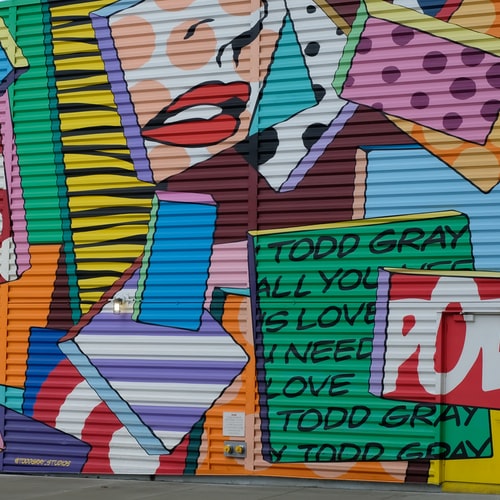 TODD GRAY
ALL YOU
IS LOVE
NEED
LOVE
TODD GRAY
Y TODD GRAY
POW
@TODDGRAY_STUDIOS